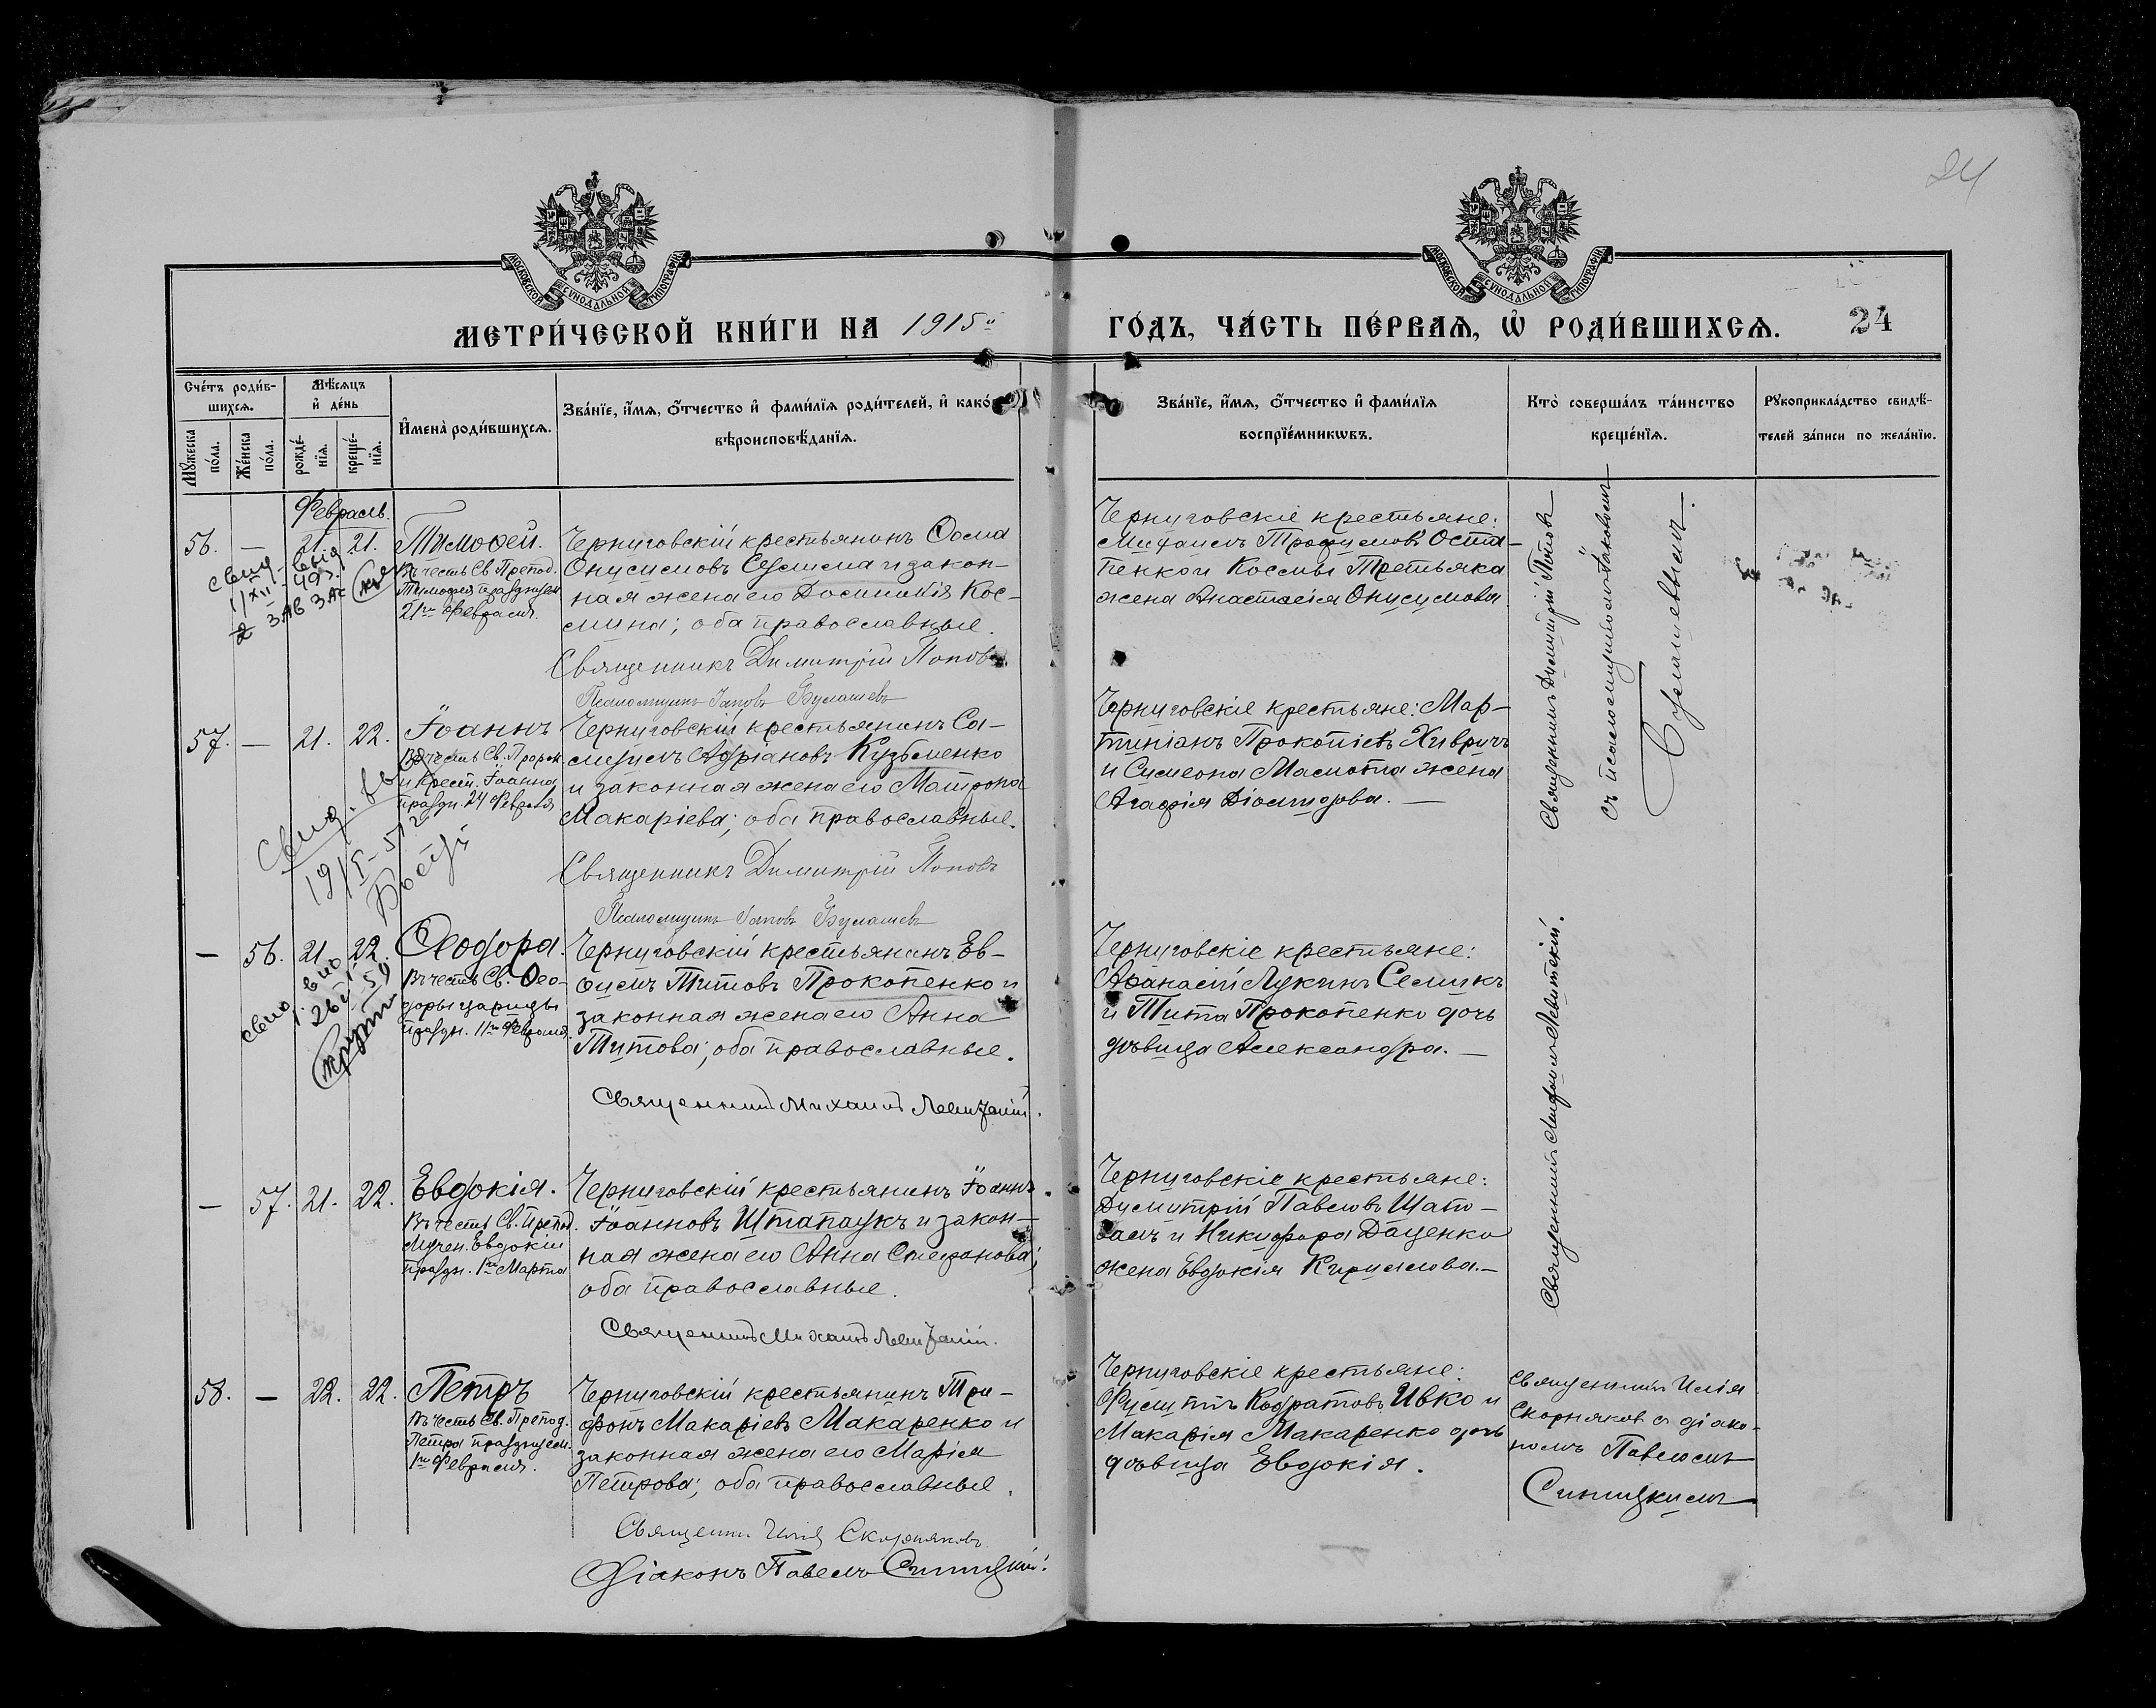 24
МОСКОВСКОЙ СУНОДАЛЬНОЙ ТИПОГРАФІИ
МОСКОВСКОЙ СУНОДАЛЬНОЙ ТИПОГРАФІИ
МЕТРИ́ЧЕСКОЙ КНИ́ГИ НА 1915й
ГО́ДЪ, ЧА́СТЬ ПЕ́РВАѦ, Ѡ҆ РОДИ́ВШИХСѦ. 24
Сче́тъ роди́в-
шихсѧ.
Мꙋ́жеска по́ла.
Же́нска по́ла.
Мѣ́сѧцъ
и҆ де́нь
рожде́-
нїѧ.
креще́-
нїѧ.
И҆мена̀ роди́вшихсѧ.
Зва́нїе, и҆́мѧ, ѻ҆́тчество и҆ фами́лїѧ роди́телей, и҆ како́
вѣроисповѣ́данїѧ.
Зва́нїе, и҆́мѧ, ѻ҆́тчество и҆ фами́лїѧ
воспрїе́мникѡвъ.
Кто̀ соверша́лъ та́инство
креще́нїѧ.
Рꙋкоприкла́дство свидѣ́-
телей за́писи по жела́нїю.
Февраль.
56. — 21. 21. Тимоѳей.
Въ честь Св Препод.
Тимоѳея празднуем
21го Февраля.
Черниговскій крестьянинъ Ѳома
Онусимовъ и закон-
ная жена его Домникія Кос-
мина; оба православные.
Священникъ Димитрій Поповъ
Псаломщикъ Іаковъ Булашевъ
Черниговскіе крестьяне:
Михаилъ Трофимовъ Оста-
пенко и Космы Третьяка
жена Анастасія Онисимова
Священникъ Димитрій Поповъ
съ псаломщикомъ Іаковомъ
57. — 21. 22. Іоаннъ
Въ честь Св. Пророк.
и Крест. Іоанна
праздн. 24 Февраля.
Черниговскій крестьянинъ Са-
муилъ Адріановъ Кузьменко
и законная жена его Матрона
Макаріева; оба православные.
Священникъ Димитрій Поповъ
Псаломщикъ Іаковъ Булашевъ
Черниговскіе крестьяне: Мар-
тиніанъ Прокопіевъ Хивричъ
и Симеона Мамота жена
Агафія Діомидова. —
— 56. 21. 22. Ѳеодора.
Въ честь Св. Ѳео-
доры царицы
праздн. 11го Февраля.
Черниговскій крестьянинъ Ев-
ѳимъ Титовъ Прокопенко и
законная жена его Анна
Титова; оба православные.
Священникъ Михаилъ Левитскій.
Черниговскіе крестьяне:
Аѳанасій Лукинъ Семикъ
и Тита Прокопенко дочь
дѣвица Александра. —
Священникъ Михаилъ Левитскій.
— 57. 21. 22. Евдокія.
Въ честь Св. Препод.
Мучен. Евдокіи
праздн. 1го Марта
Черниговскій крестьянинъ Іоаннъ
Іоанновъ Штапаукъ и закон-
ная жена его Анна Стефанова;
оба православные.
Священникъ Михаилъ Левитскій.
Черниговскіе крестьяне:
Димитрій Павловъ Шапо-
валъ и Никифора Даценко
жена Евдокія Кириллова. —
58. — 22. 22. Петръ
Въ честь Св. Препод.
Петра празднуем.
1го Февраля.
Черниговскій крестьянинъ Три-
фонъ Макаріевъ Макаренко и
законная жена его Марія
Петрова; оба православные.
Священн. Илія Скорняковъ
Діаконъ Павелъ Синицкій.
Черниговскіе крестьяне:
Филиппъ Кодратовъ Ивко и
Макарія Макаренко дочь
дѣвица Евдокія.
Священникъ Илія
Скорняковъ съ діако-
номъ Павломъ
Синицкимъ